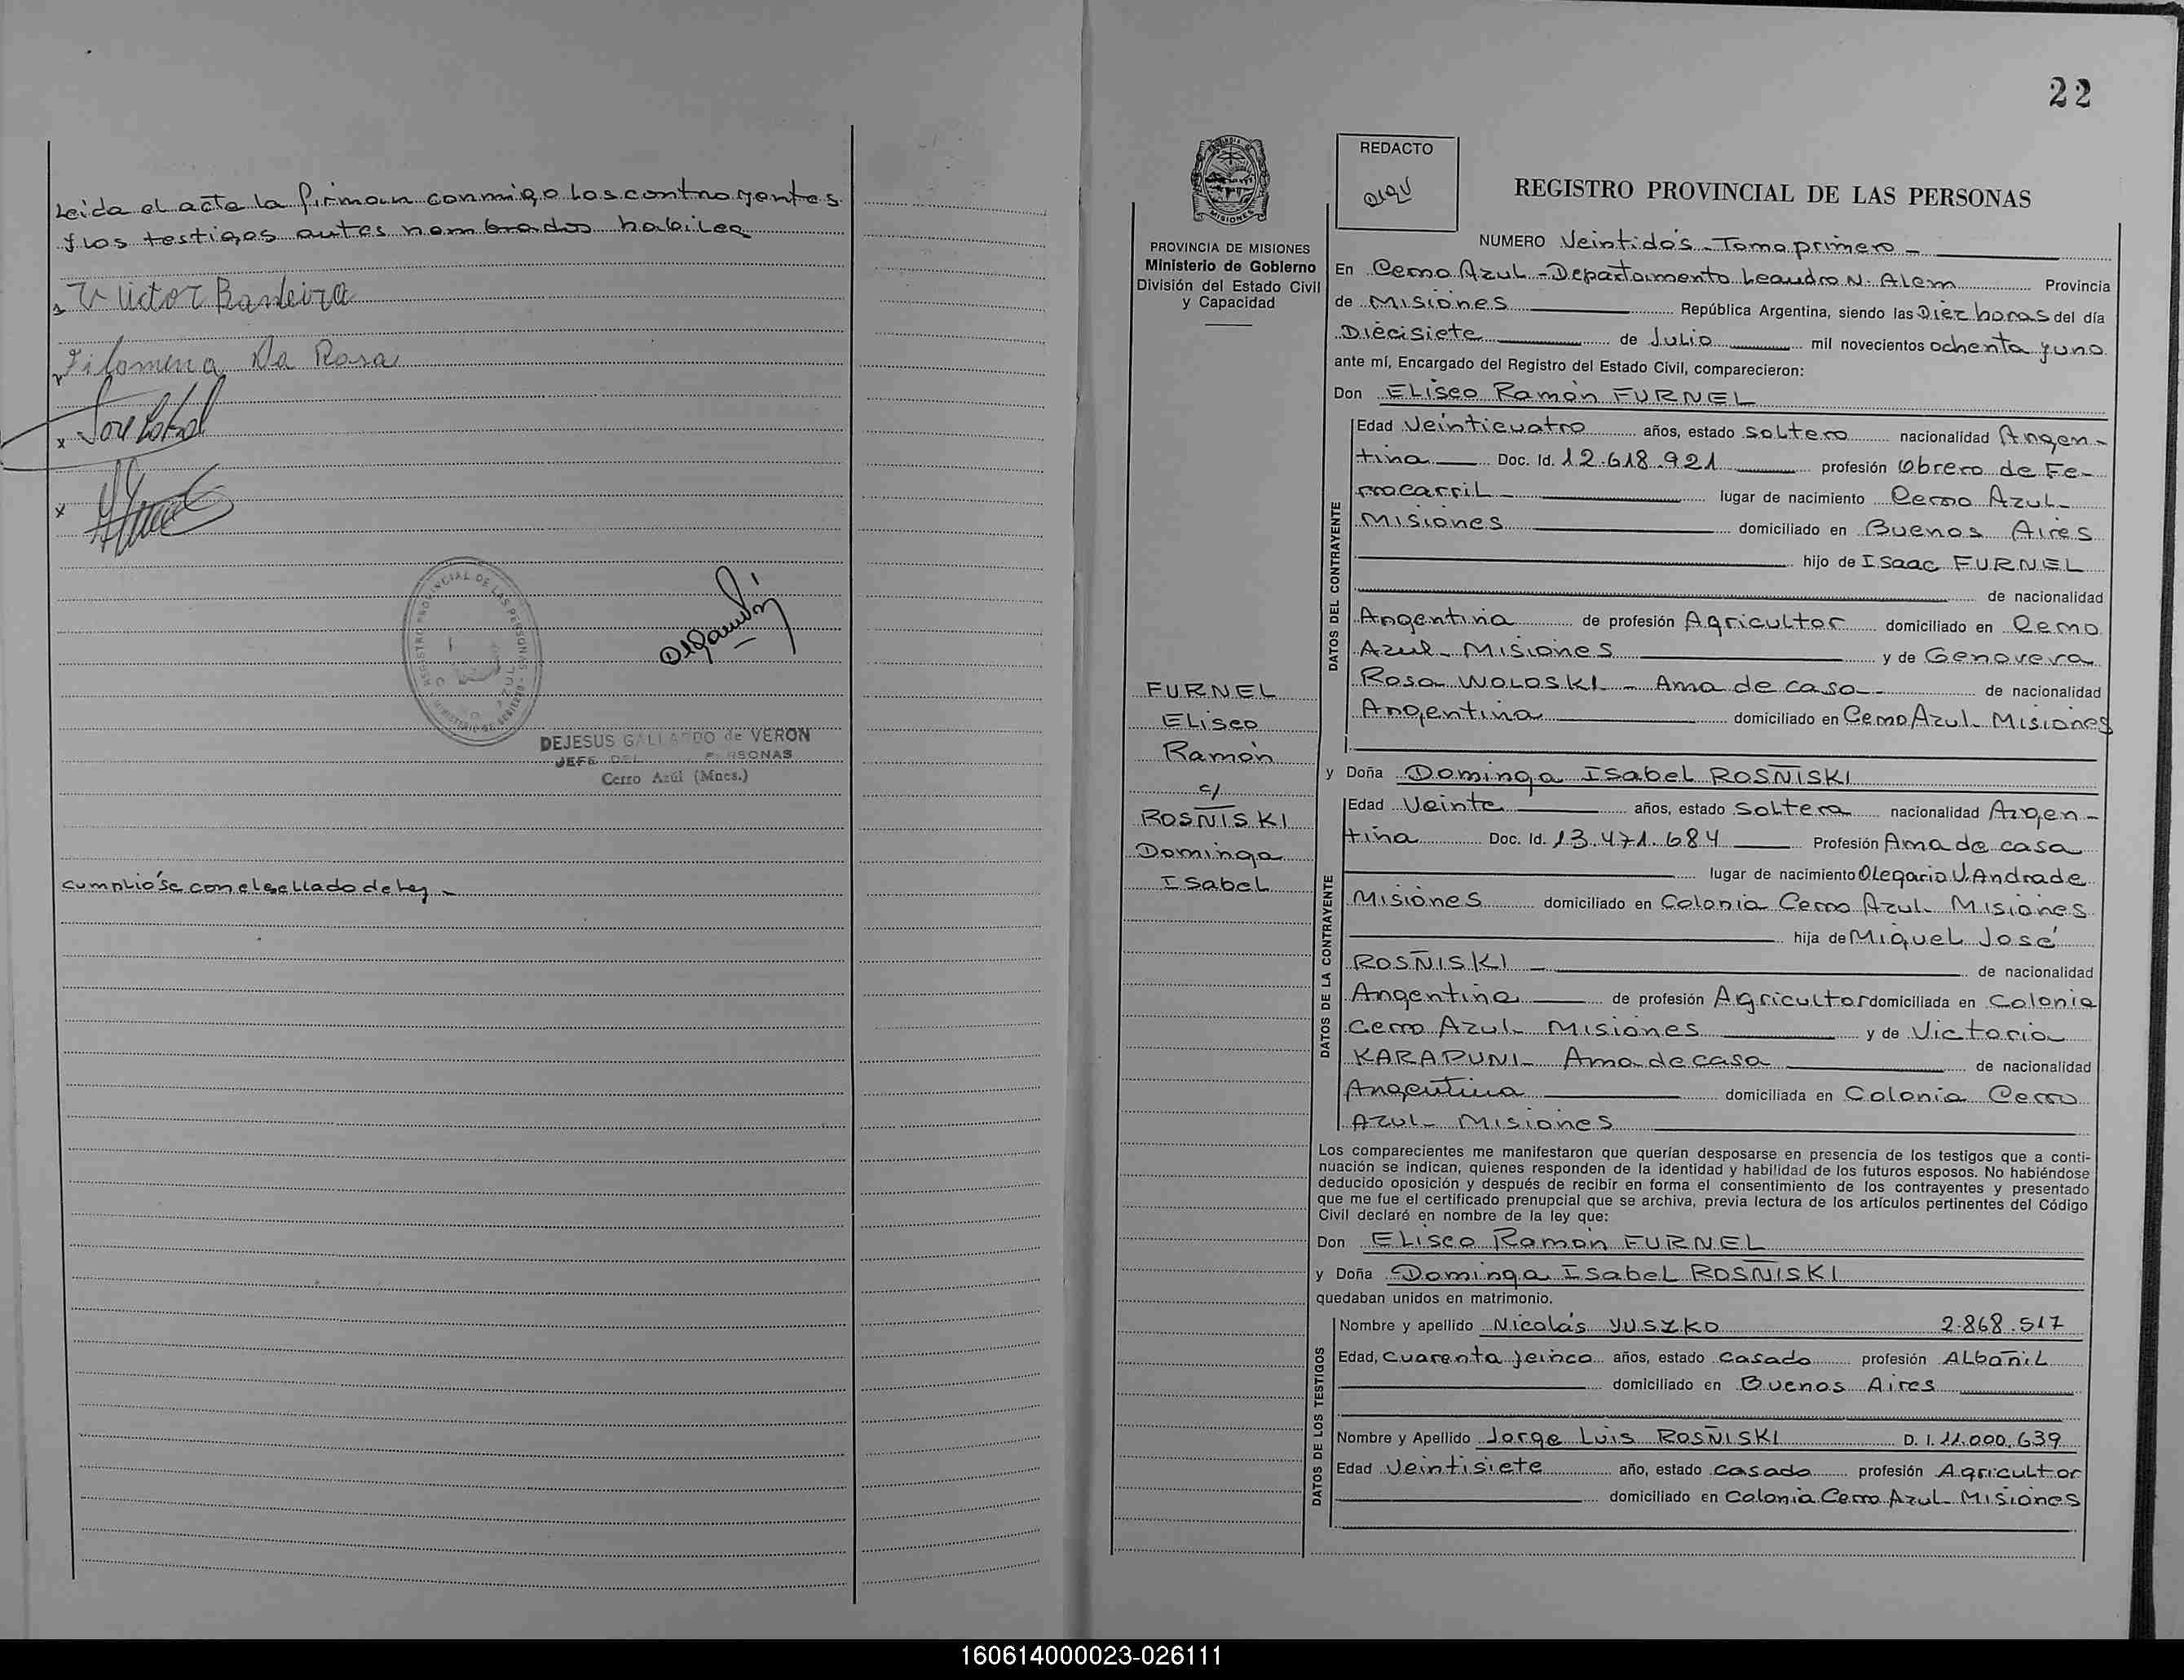 Leida el acta la firman conmigo los contrayentes
y los testigos antes nombrados habiles
Victor Bandeira
Filomena Da Rosa
REGISTRO PROVINCIAL DE LAS PERSONAS
DEJESUS GALLARDO de VERON
JEFE DEL PERSONAS
Cerro Azúl (Mnes.)
cumplióse con el sellado de ley -
22
MISIONES
PROVINCIA DE MISIONES
Ministerio de Gobierno
División del Estado Civil
y Capacidad
FURNEL
Eliseo
Ramón
c/
ROSÑISKI
Dominga
Isabel
REDACTO
REGISTRO PROVINCIAL DE LAS PERSONAS
NUMERO Veintidós - Tomo primero -
En Cerro Azul - Departamento Leandro N. Alem Provincia
de Misiones República Argentina, siendo las Diez horas del día
Diecisiete de Julio mil novecientos ochenta y uno
ante mí, Encargado del Registro del Estado Civil, comparecieron:
Don Eliseo Ramón FURNEL
DATOS DEL CONTRAYENTE
Edad Veinticuatro años, estado soltero nacionalidad Argen-
tina Doc. Id. 12.618.921 profesión Obrero de Fe-
rrocarril - lugar de nacimiento Cerro Azul-
Misiones domiciliado en Buenos Aires
hijo de Isaac FURNEL
de nacionalidad
Argentina de profesión Agricultor domiciliado en Cerro
Azul- Misiones y de Genoveva
Rosa WOLOSKI - Ama de casa - de nacionalidad
Argentina domiciliado en Cerro Azul- Misiones
y Doña Dominga Isabel ROSÑISKI
DATOS DE LA CONTRAYENTE
Edad Veinte años, estado soltera nacionalidad Argen-
tina Doc. Id. 13.471.684 Profesión Ama de casa
lugar de nacimiento Olegario V. Andrade
Misiones domiciliado en Colonia Cerro Azul- Misiones
hija de Miguel José
ROSÑISKI - de nacionalidad
Argentina de profesión Agricultor domiciliada en Colonia
Cerro Azul- Misiones y de Victoria
KARAPUNI- Ama de casa de nacionalidad
Argentina domiciliada en Colonia Cerro
Azul- Misiones
Los comparecientes me manifestaron que querían desposarse en presencia de los testigos que a conti-
nuación se indican, quienes responden de la identidad y habilidad de los futuros esposos. No habiéndose
deducido oposición y después de recibir en forma el consentimiento de los contrayentes y presentado
que me fue el certificado prenupcial que se archiva, previa lectura de los artículos pertinentes del Código
Civil declaré en nombre de la ley que:
Don Eliseo Ramon FURNEL
y Doña Dominga Isabel ROSÑISKI
quedaban unidos en matrimonio.
DATOS DE LOS TESTIGOS
Nombre y apellido Nicolás YUSZKO 2.868.517
Edad, Cuarenta y cinco años, estado casado profesión Albañil
domiciliado en Buenos Aires
Nombre y Apellido Jorge Luis ROSÑISKI D. I. 11.000.639
Edad Veintisiete año, estado casado profesión Agricultor
domiciliado en Colonia Cerro Azul- Misiones
160614000023-026111